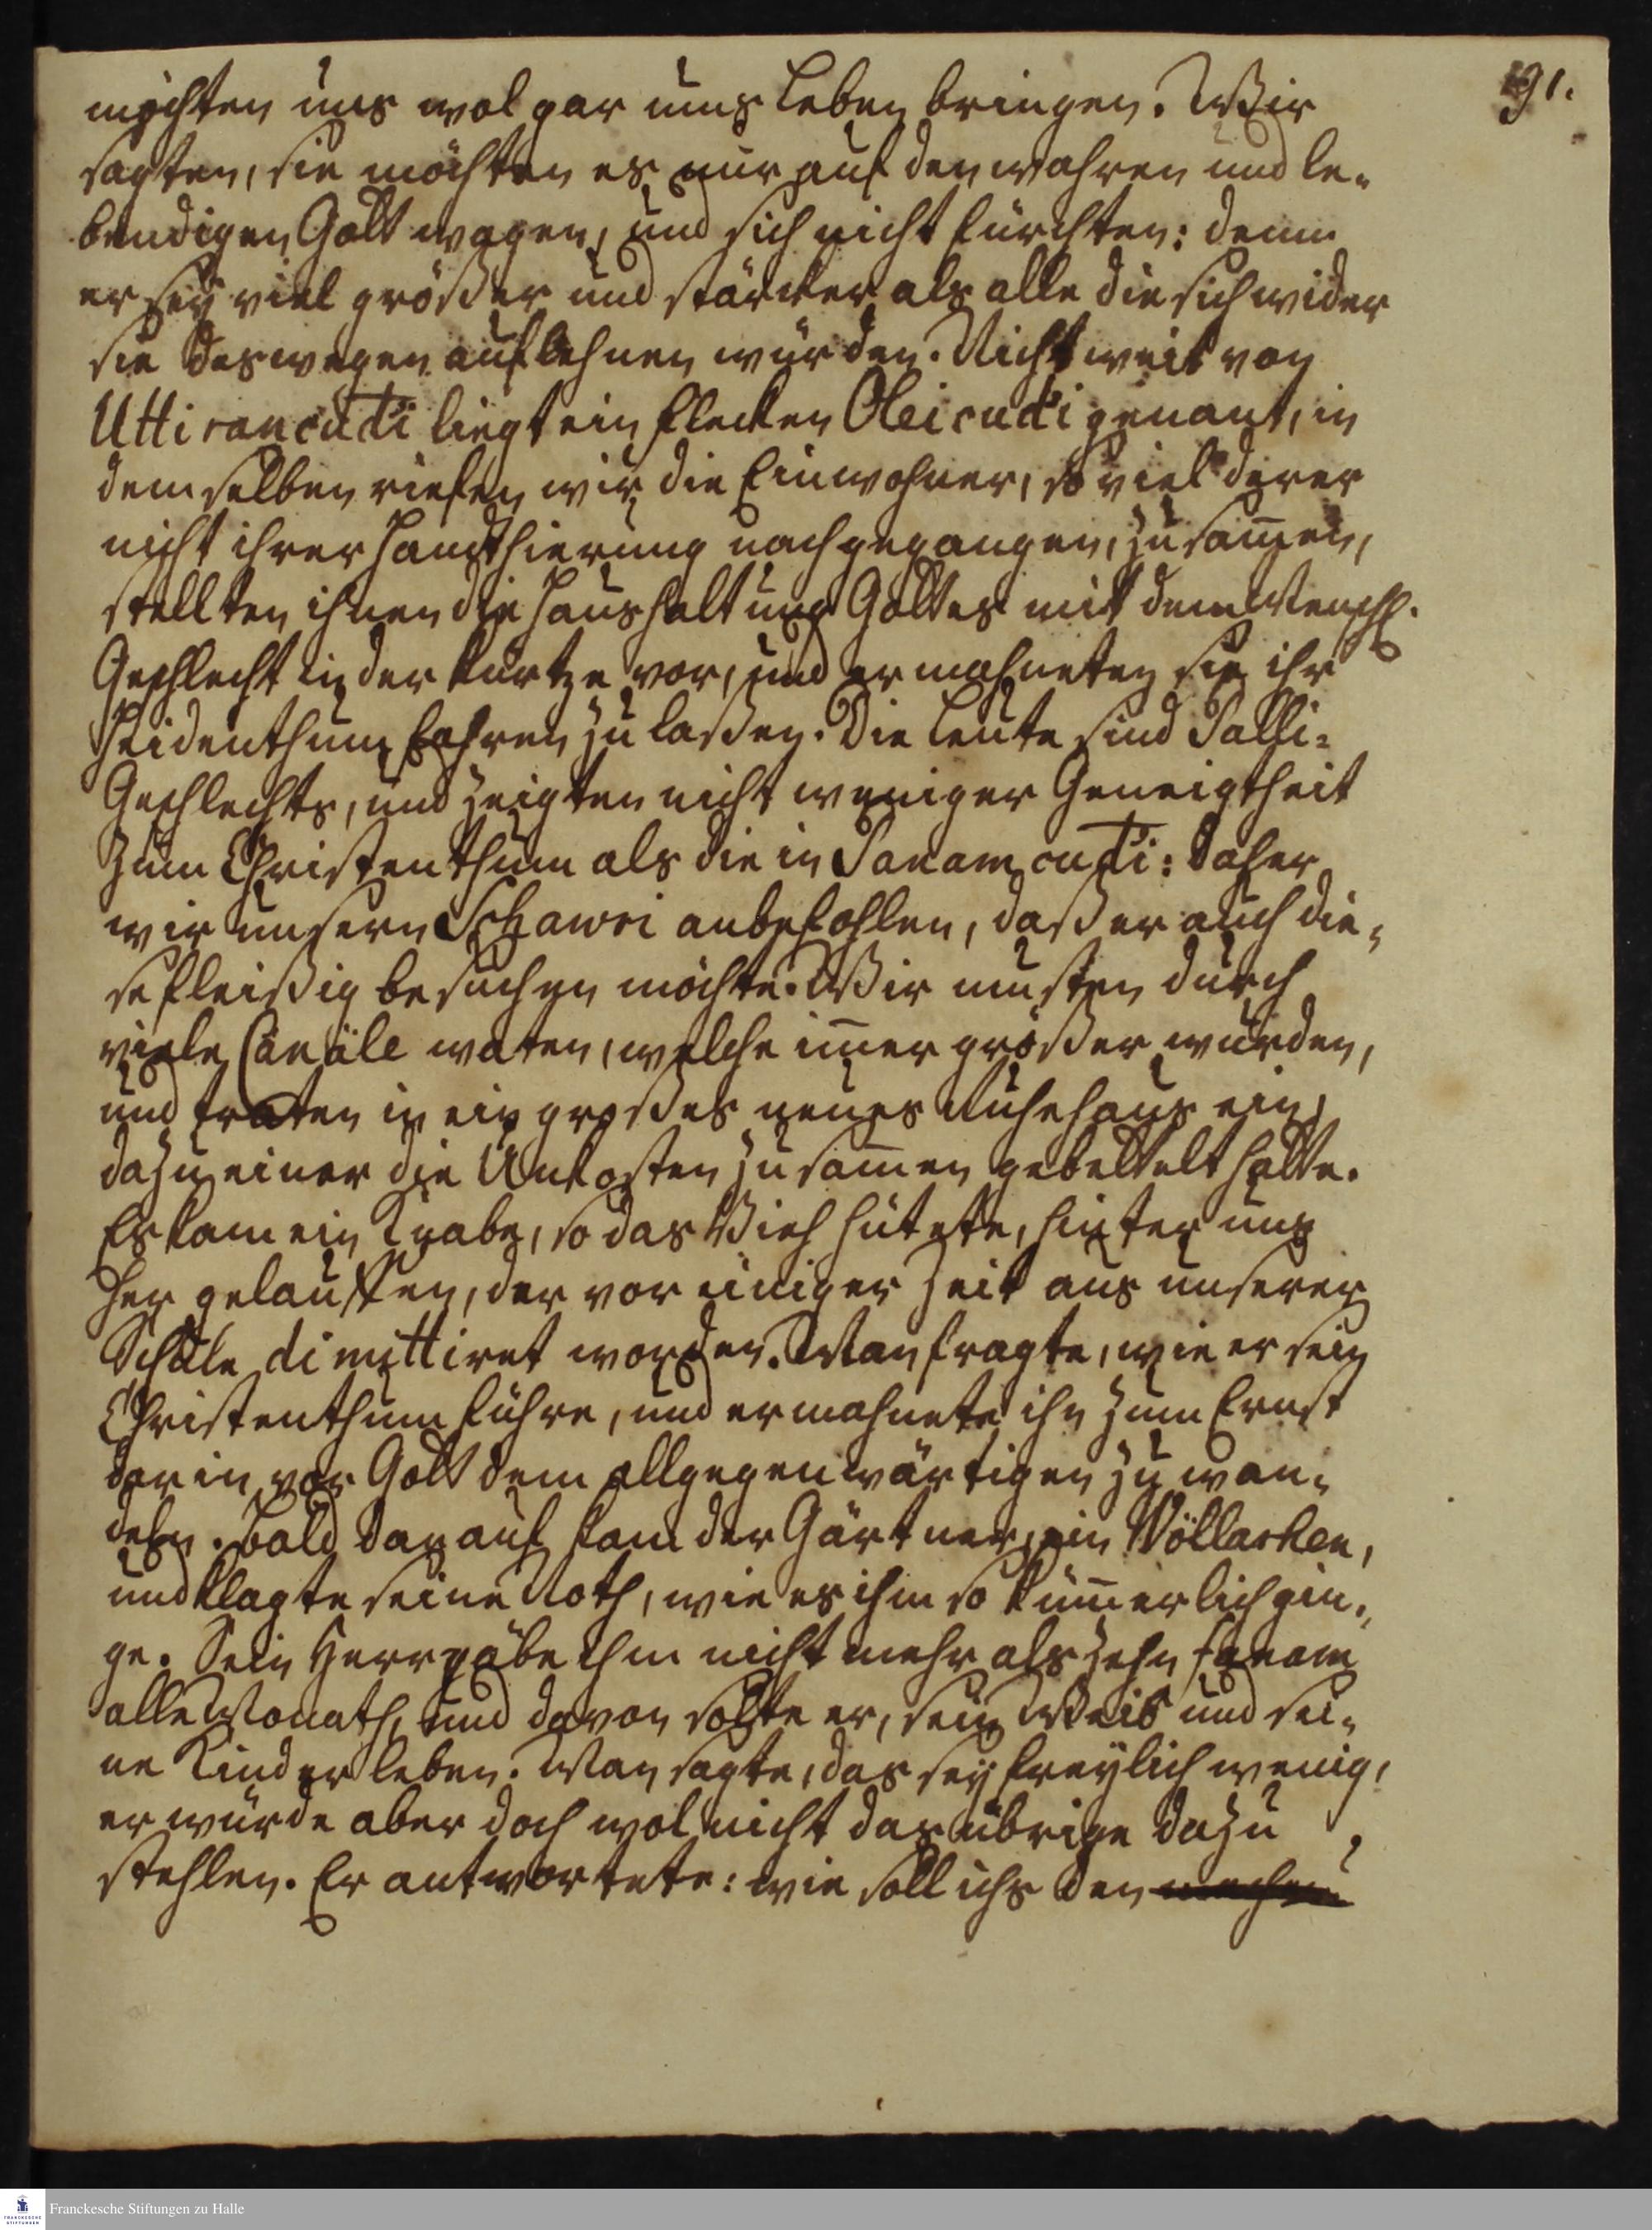 191.
möchten uns wol gar ums Leben bringen. Wir
sagten, sie möchten es nur auf den wahren und le-
bendigen Gott wagen, und sich nicht fürchten: denn
er sey viel größer und stärcker als alle die sich wider
sie deswegen auflehnen würden. Nicht weit von
Uttirancudi liegt ein Flecken Oleicudi genant, in
demselben riefen wir die Einwohner, so viel derer
nicht ihrer Handthierung nachgegangen, zusam̄en,
stellten ihnen die Haushaltung Gottes mit dem Menschl.
Geschlecht in der Kürtze vor, und ermahneten sie ihr
Heidenthum fahren zu laßen. Die Leute sind Palli-
Geschlechts, und zeigten nicht weniger Geneigtheit
zum Christenthum als die in Panamcudi: daher
wir unsern Schawri anbefohlen, daß er auch die-
se fleißig besuchen möchte. Wir musten durch
viele Canäle waten, welche im̄er größer wurden,
und traten in ein großes neues Ruhehaus ein,
dazu einer die Unkosten zusam̄en gebettelt hatte.
Es kam ein Knabe, so das Vieh hütete, hinter uns
her gelauffen, der vor einiger Zeit aus unserer
Schule dimittiret worden. Man fragte, wie er sein
Christenthum führe, und ermahnete ihn zum Ernst
darin vor Gott dem allgegenwärtigen zu wan-
deln. Bald darauf kam der Gärtner, ein Wöllarhen,
und klagte seine Noth, wie es ihm so küm̄erlich gin-
ge. Sein Herr gäbe ihm nicht mehr als zehn fanam
alle Monath, und davon solte er, sein Weib und sei-
ne Kinder leben. Man sagte, das sey freylich wenig,
er würde aber doch wol nicht das übrige dazu
stehlen. Er antwortete: wie soll ichs den machen?
Franckesche Stiftungen zu Halle